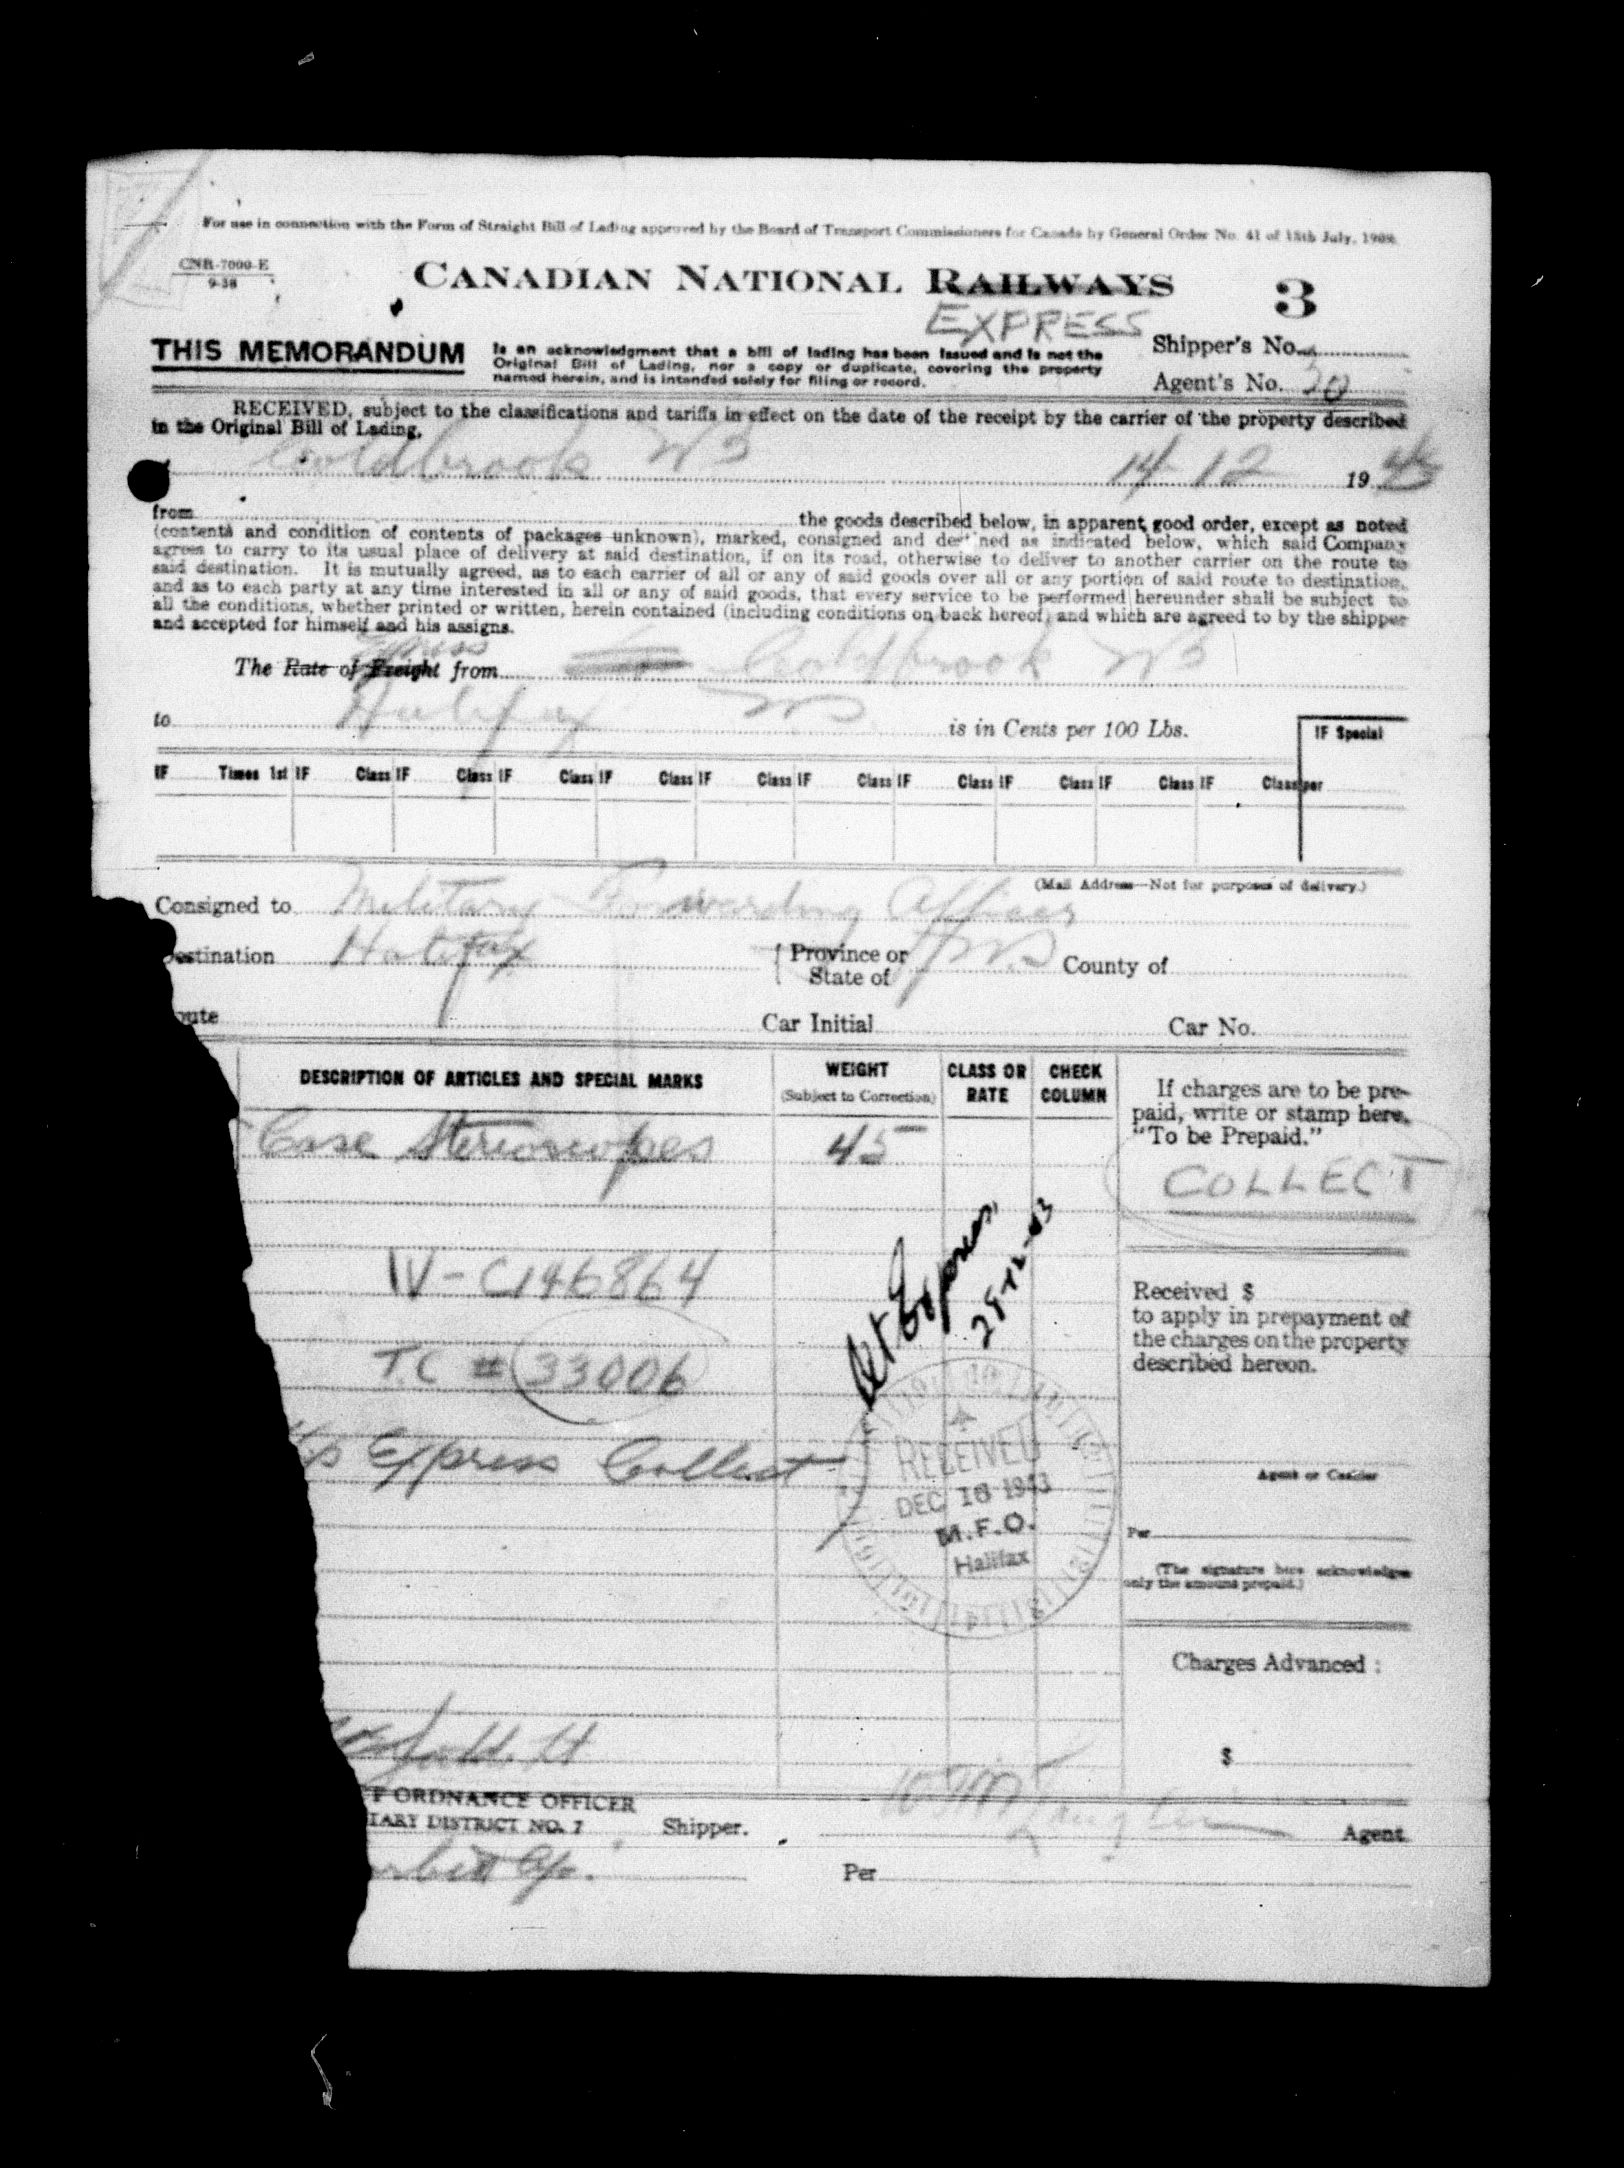 For use in connection with the Form of Straight Bill of Lading approved by the Board of Transport Commissioners for Canada by General Order No. 41 of 15th July, 1909.
CNR-7000-E
9-38
CANADIAN NATIONAL RAILWAYS
3
EXPRESS
THIS MEMORANDUM
is an acknowledgment that a bill of lading has been issued and is not the
Original Bill of Lading, nor a copy or duplicate, covering the property
named herein, and is intended solely for filing or record.
Shipper's No.
Agent's No. 20
RECEIVED, subject to the classifications and tariffs in effect on the date of the receipt by the carrier of the property described
in the Original Bill of Lading,
Coldbrook NB 14-12 1943
from the goods described below, in apparent good order, except as noted
(contents and condition of contents of packages unknown), marked, consigned and destined as indicated below, which said Company
agrees to carry to its usual place of delivery at said destination, if on its road, otherwise to deliver to another carrier on the route to
said destination. It is mutually agreed, as to each carrier of all or any of said goods over all or any portion of said route to destination,
and as to each party at any time interested in all or any of said goods, that every service to be performed hereunder shall be subject to
all the conditions, whether printed or written, herein contained (including conditions on back hereof) and which are agreed to by the shipper
and accepted for himself and his assigns.
Express
The Rate of Freight from Coldbrook NB
to Halifax NS is in Cents per 100 Lbs.
IF Special
IF Times 1st IF Class IF Class IF Class IF Class IF Class IF Class IF Class IF Class IF Class IF Class per
(Mail Address—Not for purposes of delivery.)
Consigned to Military Forwarding Officer
estination Halifax Province or State of NS County of
oute Car Initial Car No.
DESCRIPTION OF ARTICLES AND SPECIAL MARKS
WEIGHT
(Subject to Correction)
CLASS OR
RATE
CHECK
COLUMN
If charges are to be pre-
paid, write or stamp here,
"To be Prepaid."
COLLECT
Case Stereoscopes 45
IV-C146864
T.C # 33006
Express Collect
Express
28-12-43
RECEIVED
DEC 16 1943
M.F.O.
Halifax
Received $
to apply in prepayment of
the charges on the property
described hereon.
Agent or Cashier
Per
(The signature here acknowledges
only the amount prepaid.)
Charges Advanced:
$
F ORDNANCE OFFICER
TARY DISTRICT NO. 7
Shipper.
Agent
Per